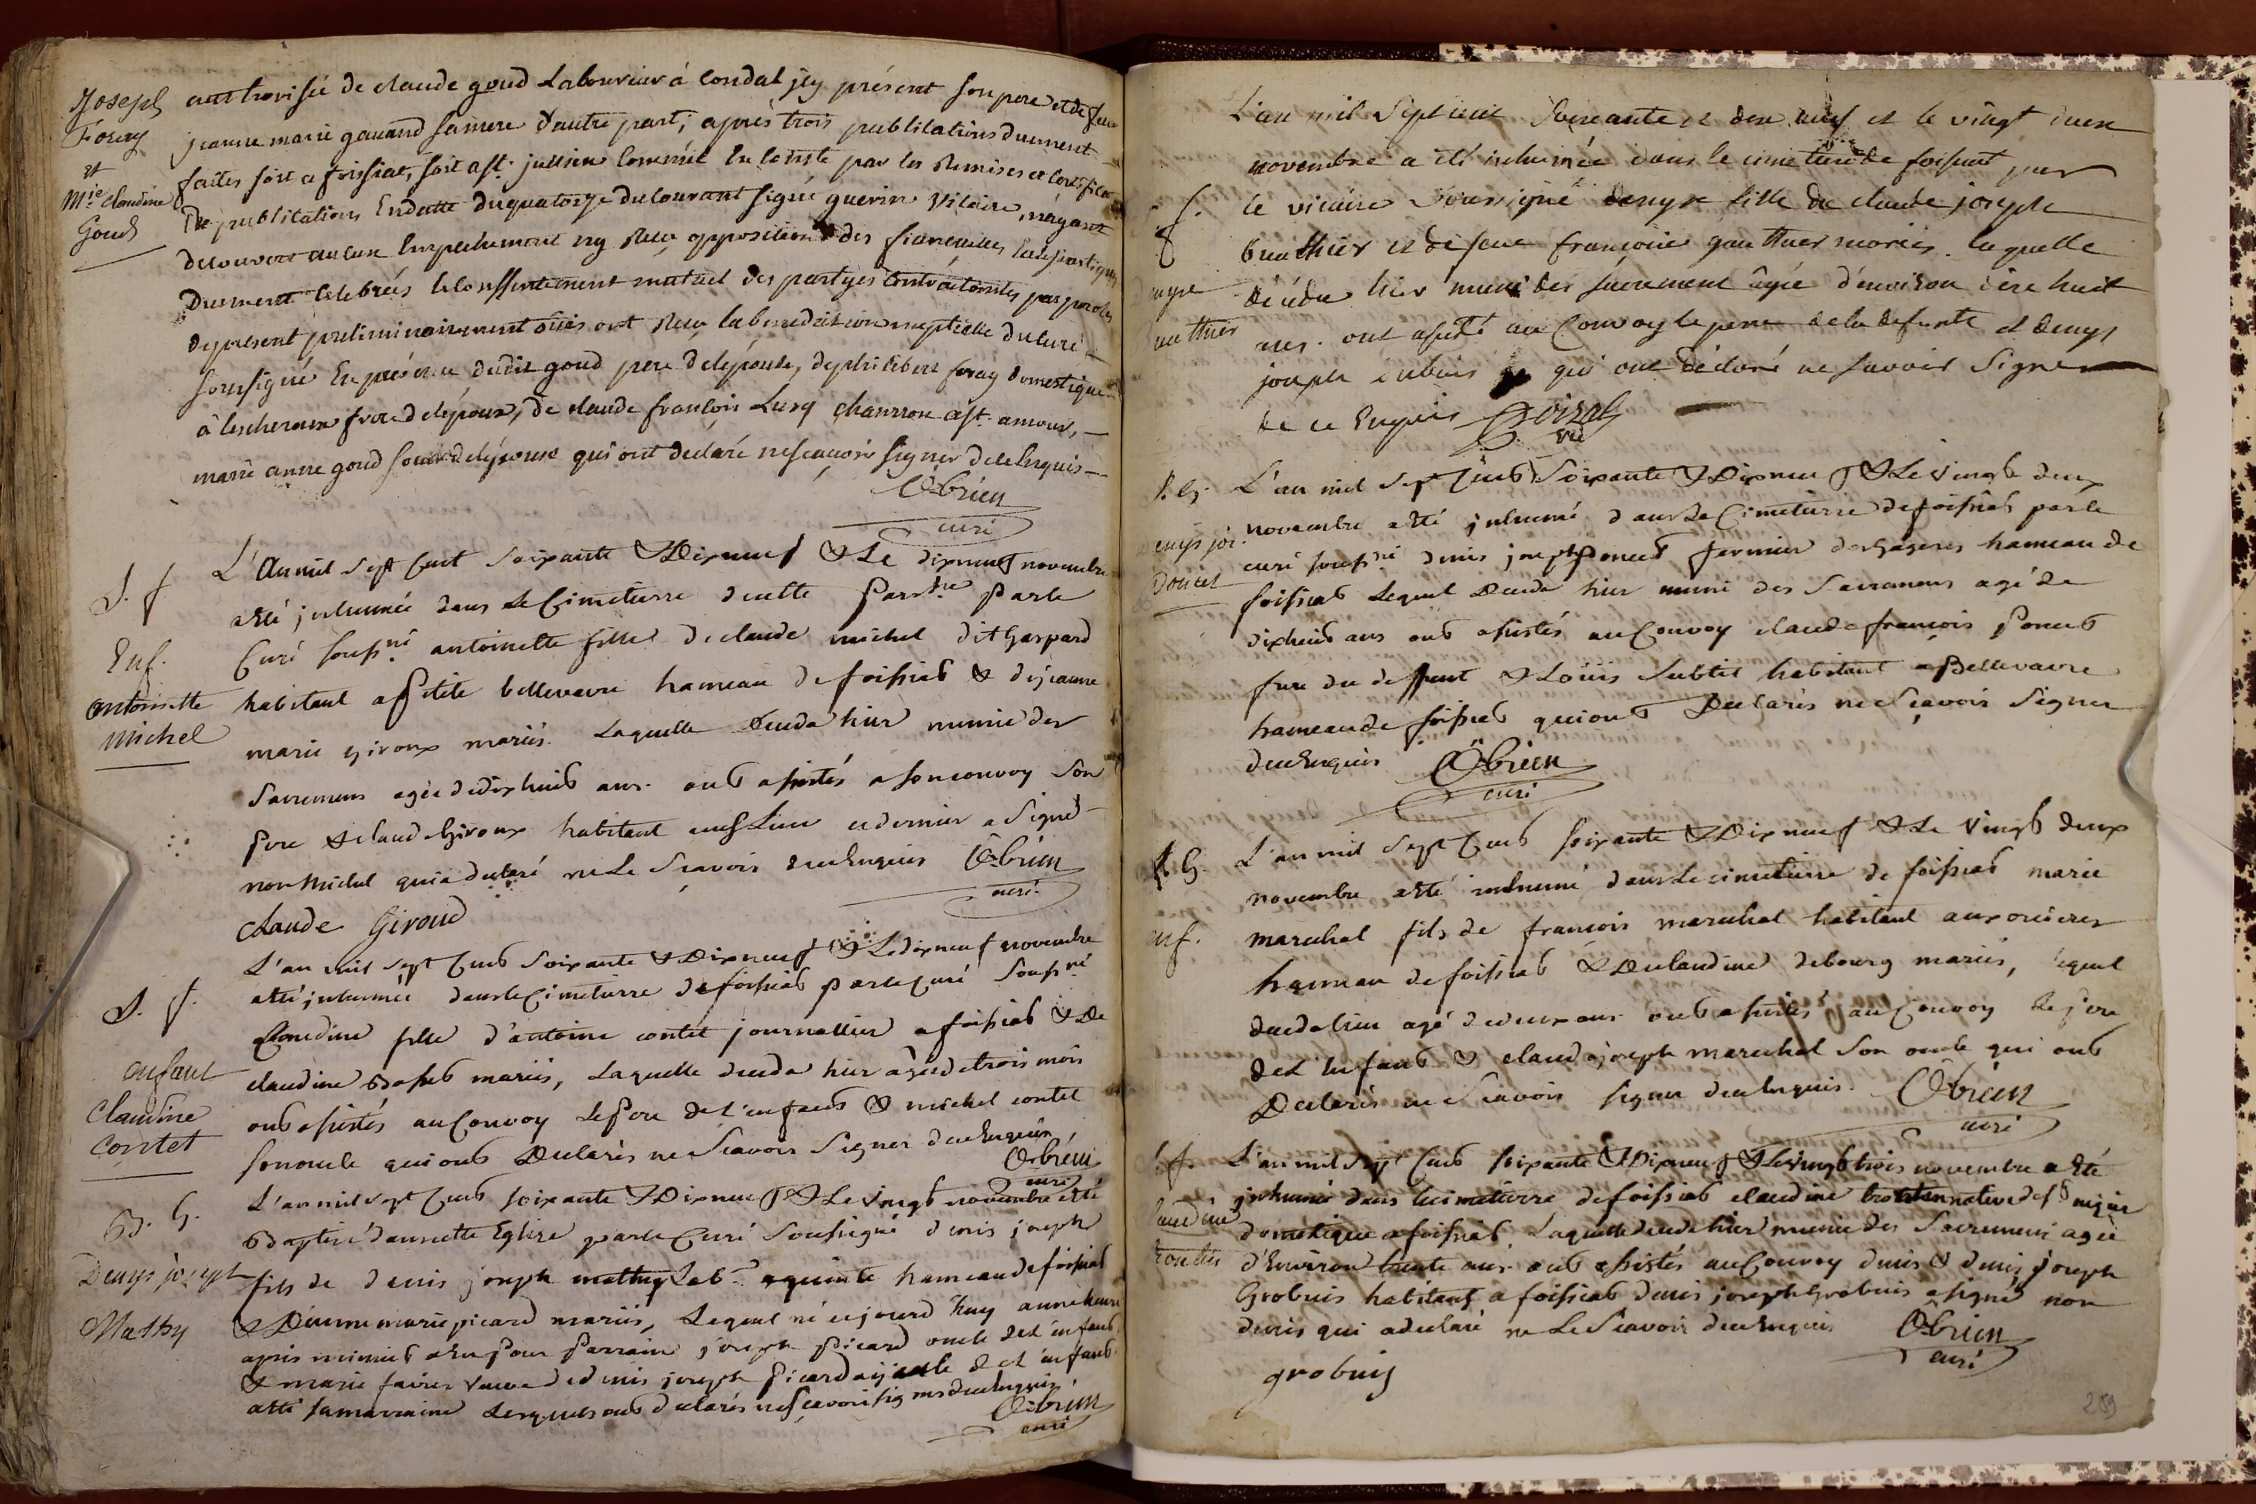 Joseph
Foray
et
M.ie claudine
Goud
authorisée de claude goud Laboureur à Condal jcy présent son pere et de feue
jeanne marie gauand sa mere d'autre part, après trois publications duement
faites soit a foissiat, soit a st. jullien comme il en conste par les remises et certificats
de publications En datte du quatorze du courant signé guerin vicaire, n'ayant
decouvert aucun Empechement ny reçu opposition des fiancailles Ecclesiastiques
Duement celebrées le conssentement mutuel des partyes contractantes par paroles
de present preliminairement ouis ont reçu la benediction nuptialle du curé
soussigné En présence dudit goud pere de l'épouse, de philibert foray domestique
à lescheroux frere de l'époux, de claude françois Lusy chanron a st. amour,
marie anne goud soeur de l'épouse qui ont declaré ne scauoir signer de ce Enquis
Obrien
curé
S. f
Enf.
antoinette
Michel
L'An mil sept Cent soixante & Dix neuf & Le dix neuf novembre
a été jnhumée dans Le Cimetierre de cette parr.sse par le
Curé souss.né antoinette fille de claude michel dit Gaspard
habitant a petite bellevavre hameau de foissiat & de jeanne
marie giroux mariés. Laquelle deceda hier munie des
sacremens agée de dix huit ans. ont assistés a son convoy son
Pere & claude Giroux habitant aud. Lieu ce dernier a signé
non michel qui a declaré ne Le Scavoir de ce Enquis Obrien
curé
claude Giroud
S. f.
enfant
Claudine
contet
L'an mil sept Cent soixante & Dix neuf & Le dix neuf novembre
a été jnhumée dans le Cimetierre de foissiat par le Curé souss.né
Claudine fille d'antoine contet journallier a foissiat & De
claudine mariés, Laquelle deceda hier agée de trois mois
ont assistés au Convoy Le Pere de L'enfant & michel contet
son oncle qui ont Declarés ne Scavoir Signer de ce Enquis
Obrien
curé
B. G.
Denys joseph
Mathy
L'an mil sept Cent soixante & Dix neuf & Le vingt novembre a été
Baptisé dans cette Eglise par le Curé soussigné denis joseph
fils de denis joseph mathy Lab.r a hameau de foissiat
& De marie picard mariés, Lequel né ce jourd'huy a une heure
après minuit a eu pour Parrain joseph Picard oncle de L'enfant
& marie favier veuve de denis joseph Picard ayeule de L'enfant
a été sa marraine Lesquels ont declarés ne scavoir signer de ce Enquis
Obrien
curé
L'an mil sept cent soixante et dix neuf et le vingt deux
novembre a été inhumée dans le cimetiere de foissiat par
le vicaire soussigné denyse fille de claude joseph
gauthier et de feue françoise gauthier mariés. laquelle
décéda hier munie des sacrement agée d'environ dix huit
ans. ont assisté au Convoy le pere de la defunte et denys
joseph dubois qui ont déclaré ne savoir Signer
de ce Enquis
vic
S. G.
denys jos.
Poncet
L'an mil Sept Cent Soixante & Dix neuf & Le vingt deux
novembre a été jnhumé dans Le Cimetierre de foissiat par le
curé souss.né denis joseph Poncet fermier des hameau de
foissiat Lequel deceda hier muni des Sacremens agé de
dix huit ans ont assistés au Convoy claude françois Poncet
frere du deffunt & Louis Subtil habitant a Bellevavre
hameau de foissiat qui ont Declarés ne Scavoir Signer
de ce Enquis Obrien
curé
S. G.
enf.
L'an mil Sept Cent soixante & Dix neuf & Le vingt deux
novembre a été inhumé dans Le cimetierre de foissiat marie
marechal fils de françois marechal habitant aux
hameau de foissiat & De claudine debourg mariés, lequel
deceda hier agé de deux ans ont assistés au Convoy Le Pere
de L'enfant & claude joseph marechal Son oncle qui ont
Declarés ne Scavoir signer de ce Enquis. Obrien
curé
S. f.
claudine
L'an mil Sept Cent soixante & Dix neuf & Le vingt trois novembre a été
jnhumée dans Le cimetierre de foissiat claudine native de
domestique a foissiat Laquelle deceda hier munie des Sacremens agée
d'Environ trente ans. ont assistés au Convoy denis & denis joseph
Grobuis habitans a foissiat denis joseph Grobuis a signé non
denis qui a declaré ne Le Scavoir de ce Enquis Obrien
curé
grobuis
259